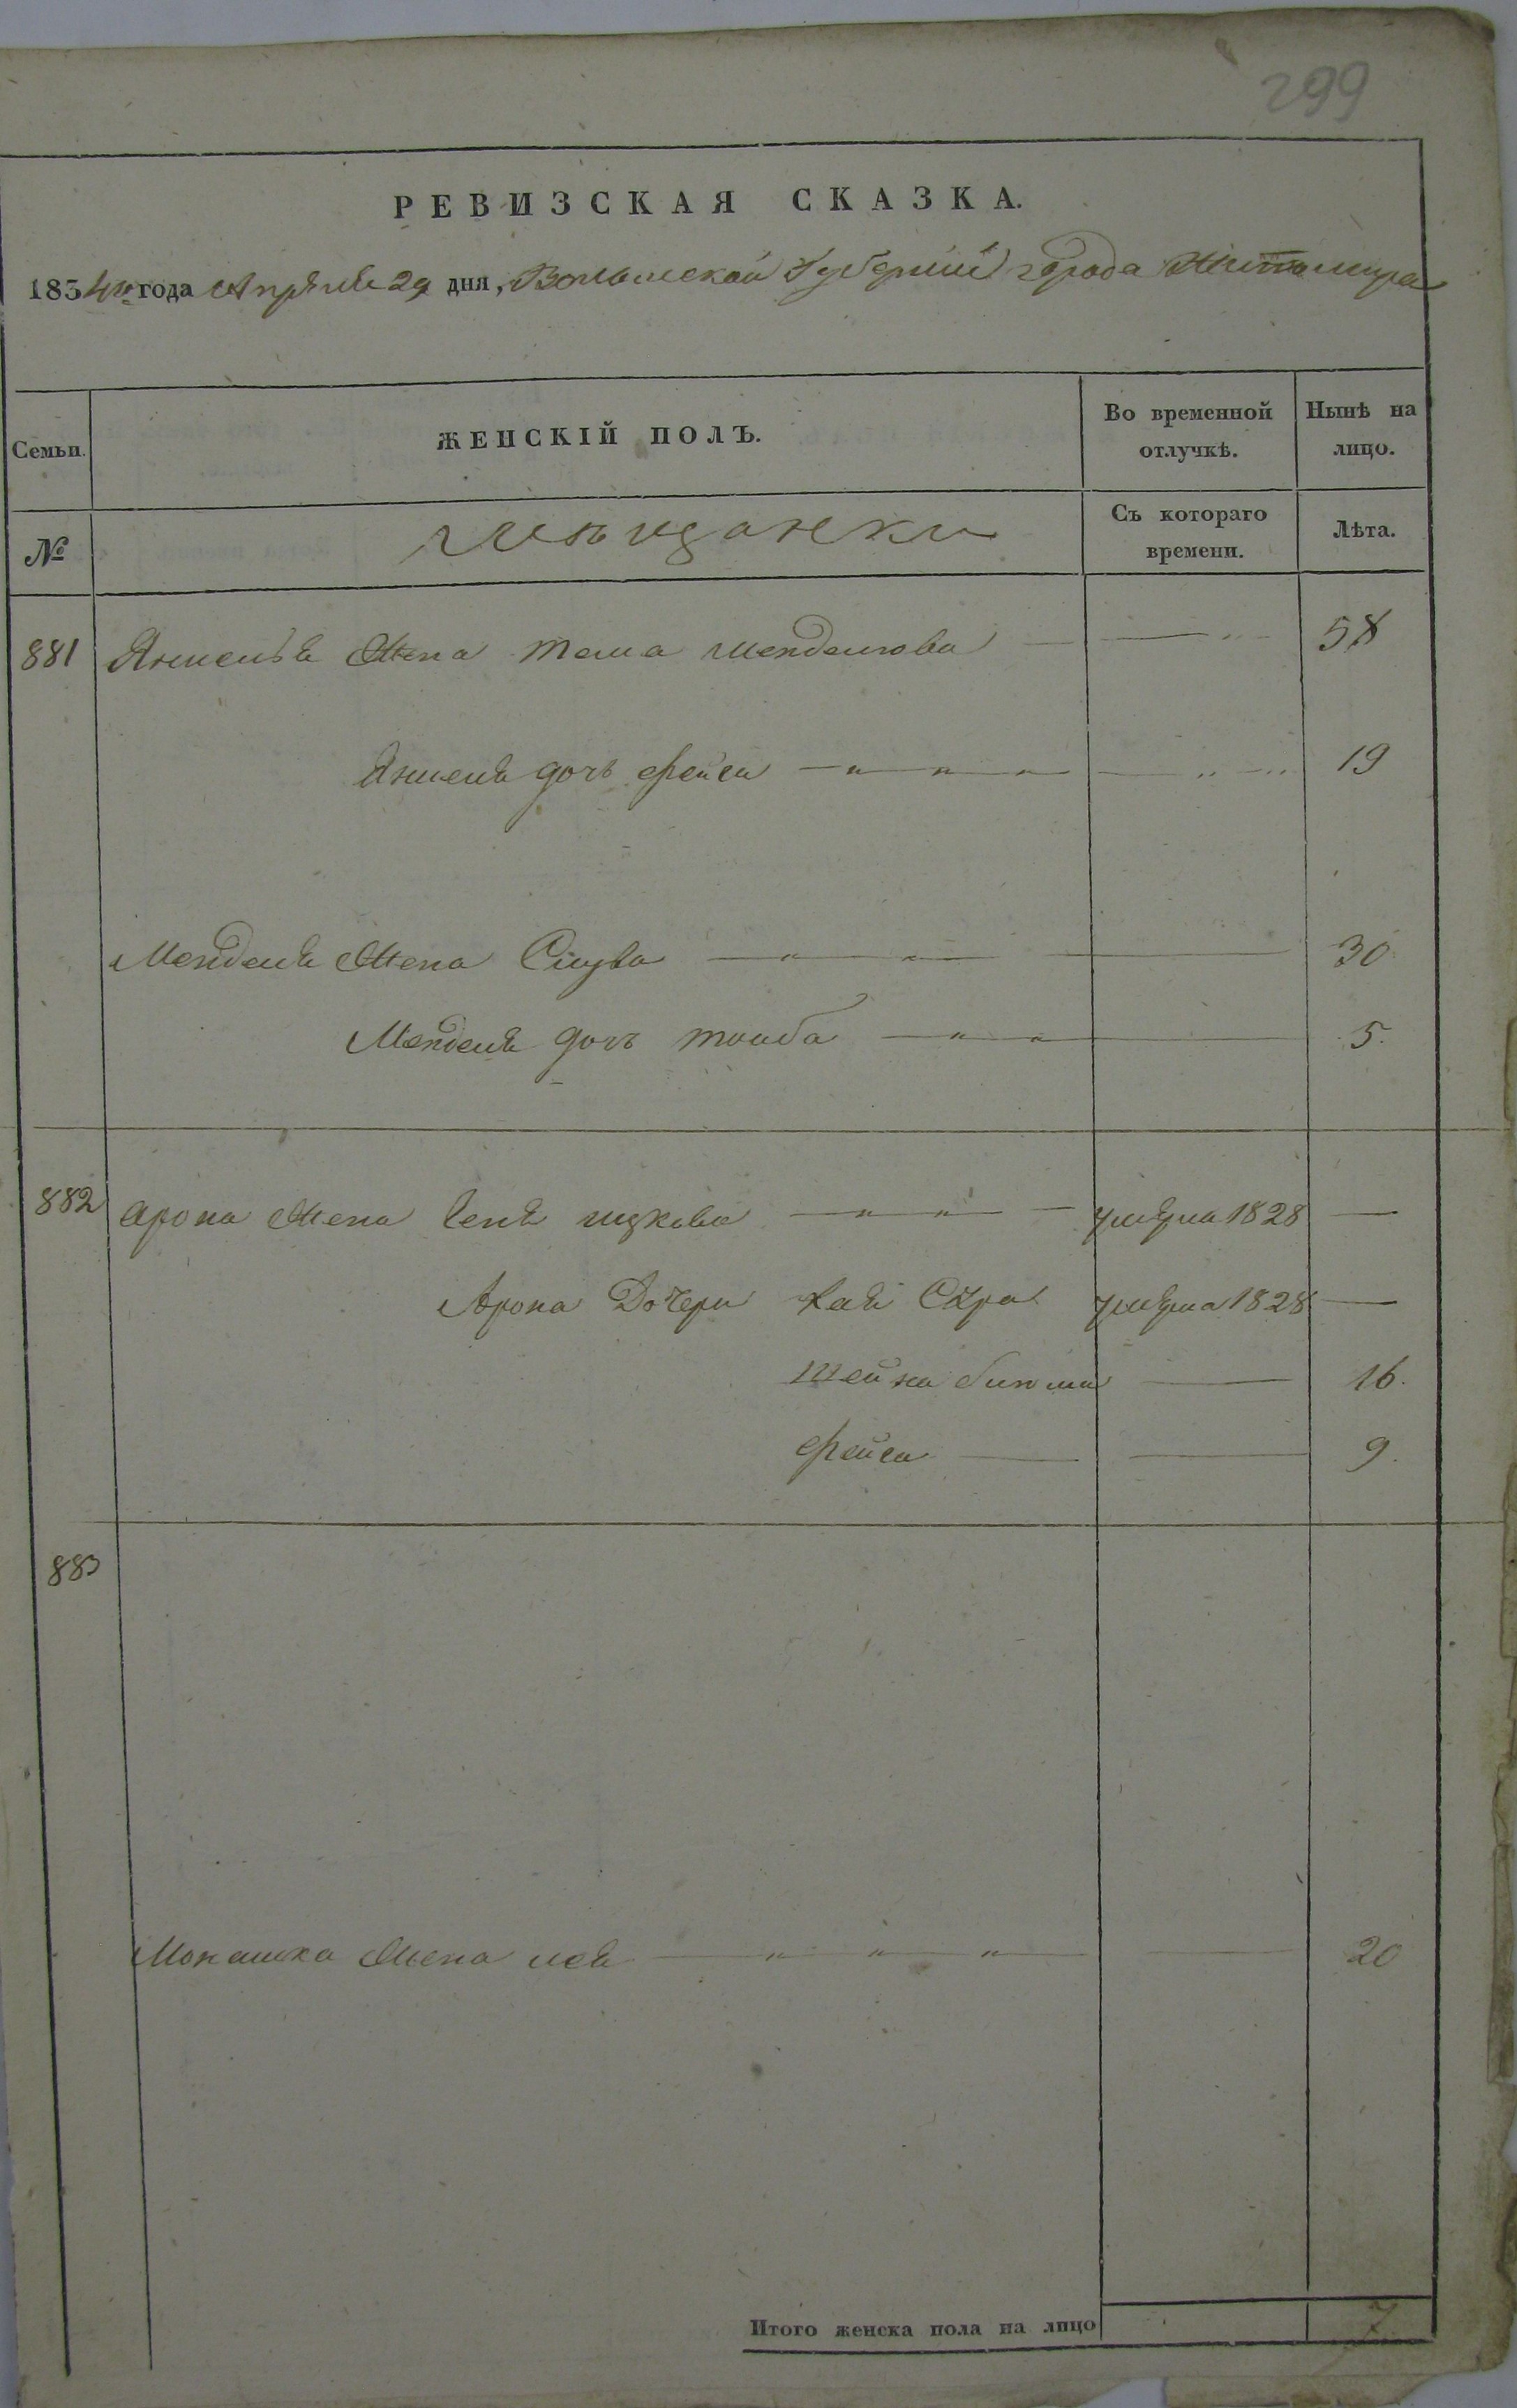 299
РЕВИЗСКАЯ СКАЗКА.
1834го года Апреля 29 дня, Волынской Губернии города Житомира
Семьи.
ЖЕНСКІЙ ПОЛЪ.
Во временной отлучкѣ.
Нынѣ на лицо.
№
мещанки
Съ котораго времени.
Лѣта.
881 Янкеля Жена Тема менделова 58
Янкеля дочь фейга 19
Менделя Жена Слува 30
Менделя дочь тойба 5.
882 арона Жена Беня ицкова умерла 1828 —
Арона Дочери Хая Сура умерла 1828 —
шейна 16.
фейга 9.
883
Монашка Жена лея 20
Итого женска пола на лицо 7